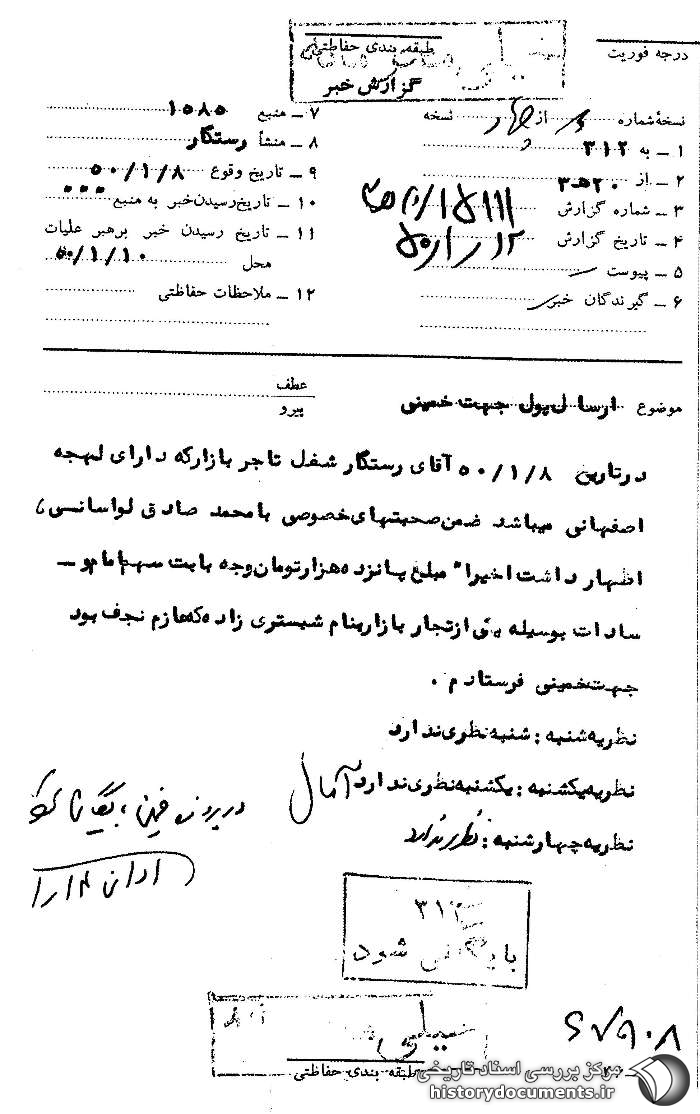 درجه فوریت
طبقه بندی حفاظتی
گزارش خبر
نسخهٔ شماره از چهار نسخه
۱ ـ به ۳۱۲
۲ ـ از ۲۰ ه‍ ۳
۳ ـ شماره گزارش
۴ ـ تاریخ گزارش
۵ ـ پیوست
۶ ـ گیرندگان خبر
۷ ـ منبع ۱۵۸۵
۸ ـ منشأ رستگار
۹ ـ تاریخ وقوع ۵۰/۱/۸
۱۰ ـ تاریخ رسیدن خبر به منبع ۰۰۰
۱۱ ـ تاریخ رسیدن خبر برهبر علیات
محل ۵۰/۱/۱۰
۱۲ ـ ملاحظات حفاظتی
موضوع ارسال پول جهت خمینی
عطف
پیرو
درتاریخ ۵۰/۱/۸ آقای رستگار شغل تاجر بازارکه دارای لهجه
اصفهانی میباشد ضمن صحبتهای خصوصی بامحمد صادق لواسانسی
اظهار داشت اخیرا" مبلغ پانزده هزارتومان وجه بابت سهم امام و ـ
سادات بوسیله یکی ازتجار بازاربنام شبستری زاده که عازم نجف بود
جهت خمینی فرستادم .
نظریه شنبه : شنبه نظری ندارد
نظریه یکشنبه : یکشنبه نظری ندارد آمال
نظریه چهارشنبه : نظری ندارد
۳۱۲
بایگانی شود
خیلی
طبقه بندی حفاظتی
مرکز بررسی اسناد تاریخی
historydocuments.ir